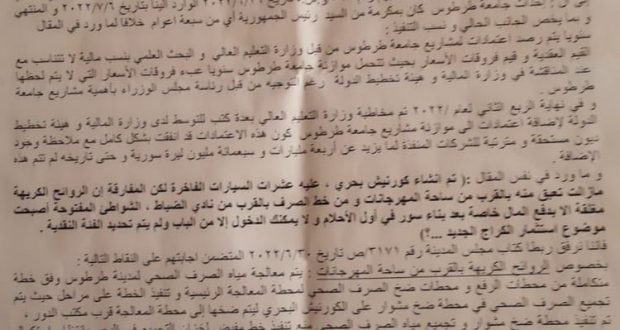 إلى أن : إحداث جامعة طرطوس كان بمكرمة من السيد رئيس الجمهورية أي من سبعة أعوام خلافا لما ورد في المقال
و بما يخص الجانب المالي و نسب التنفيذ :
سنويا يتم رصد اعتمادات لمشاريع جامعة طرطوس من قبل وزارة التعليم العالي و البحث العلمي بنسب مالية لا تتناسب مع
القيم العقدية و قيم فروقات الأسعار بحيث تتحمل موازنة جامعة طرطوس سنويا عبء فروقات الأسعار التي لا يتم لحظها
عند المناقشة في وزارة المالية و هيئة تخطيط الدولة رغم التوجيه من قبل رئاسة مجلس الوزراء بأهمية مشاريع جامعة
طرطوس .
و في نهاية الربع الثاني لعام /٢٠٢٢ تم مخاطبة وزارة التعليم العالي بعدة كتب للتوسط لدى وزارة المالية و هيئة تخطيط
الدولة لإضافة اعتمادات الى موازنة مشاريع جامعة طرطوس كون هذه الاعتمادات قد انفقت بشكل كامل مع ملاحظة وجود
ديون مستحقة و مترتبة للشركات المنفذة لما يزيد عن أربعة مليارات و سبعمائة مليون ليرة سورية و حتى تاريخه لم تتم هذه
الإضافة .
و ما ورد في نفس المقال :( تم انشاء كورنيش بحري ، عليه عشرات السيارات الفاخرة لكن المفارقة إن الروائح الكريهة
مازالت تعبق منه بالقرب من ساحة المهرجانات و من خط الصرف بالقرب من نادي الضباط ، الشواطئ المفتوحة أصبحت
مغلقة الا بدفع المال خاصة بعد بناء سور في أول الأحلام و لا يمكنك الدخول إلا من الباب ولم يتم تحديد الفئة النقدية .
موضوع استثمار الكراج الجديد ...؟)
فاننا نرفق ربطا كتاب مجلس المدينة رقم ٣١٧١/ص تاريخ ٢٠٢٢/٦/٣٠ المتضمن اجابتهم على النقاط التالية :
بخصوص الروائح الكريهة بالقرب من ساحة المهرجانات : يتم معالجة مياه الصرف الصحي لمدينة طرطوس وفق خطة
متكاملة من محطات الرفع و محطات ضخ الصرف الصحي لمحطة المعالجة الرئيسية و تنفيذ الخطة على مراحل حيث يتم
تجميع الصرف الصحي في محطة ضخ مشوار على الكورنيش البحري ليتم ضخها إلى محطة المعالجة قرب مكتب الدور ،